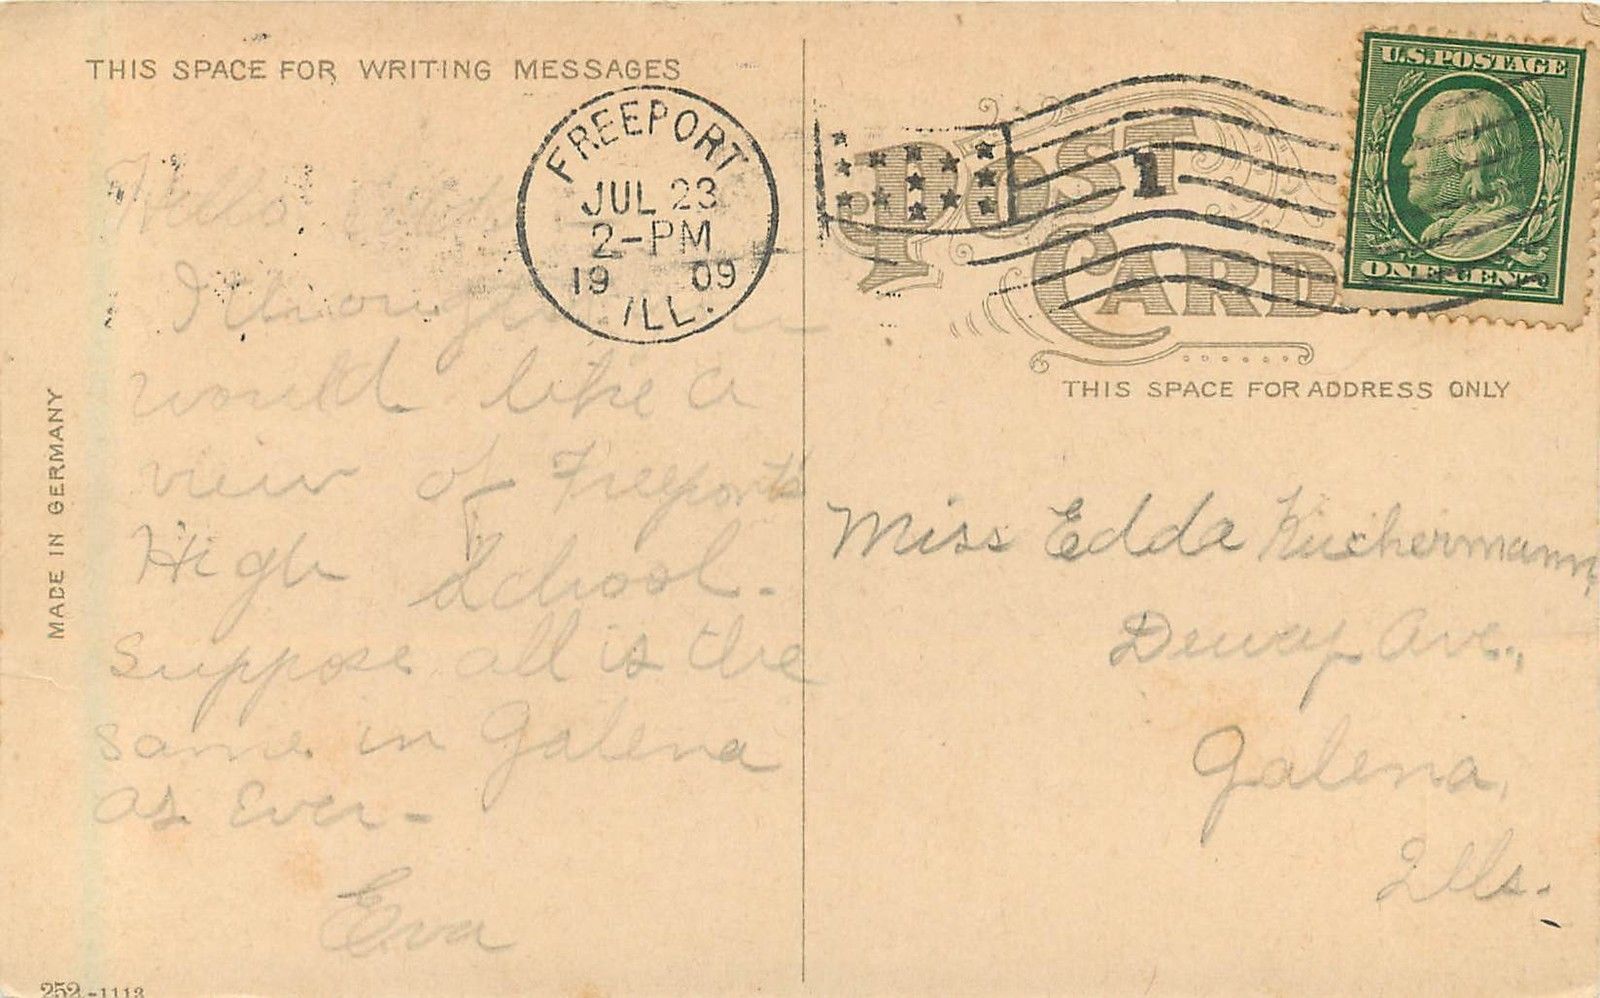 THIS SPACE FOR WRITING MESSAGES
FREEPORT
JUL 23
2-PM
1909
ILL.
1
U.S. POSTAGE
ONE CENT
POST
CARD
THIS SPACE FOR ADDRESS ONLY
MADE IN GERMANY
Hello
I thought
would like a
view of Freeport's
High School.
Suppose all is the
same in Galena
as Ever-
Eva
Miss Edda Kuchermann,
Dewey Ave.,
Galena,
Ills.
252-1113